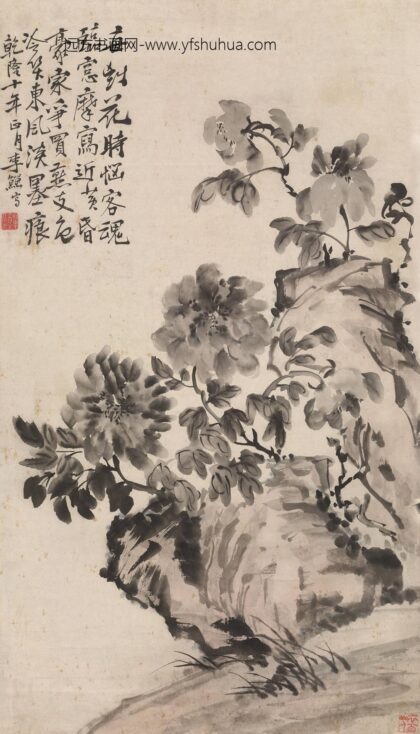 书画网-www.yfshuhua.com
每到花時惱客魂
臨窗摩寫近黃昏
豪家爭買燕支色
冷笑東風淡墨痕
乾隆十年正月李鱓寫